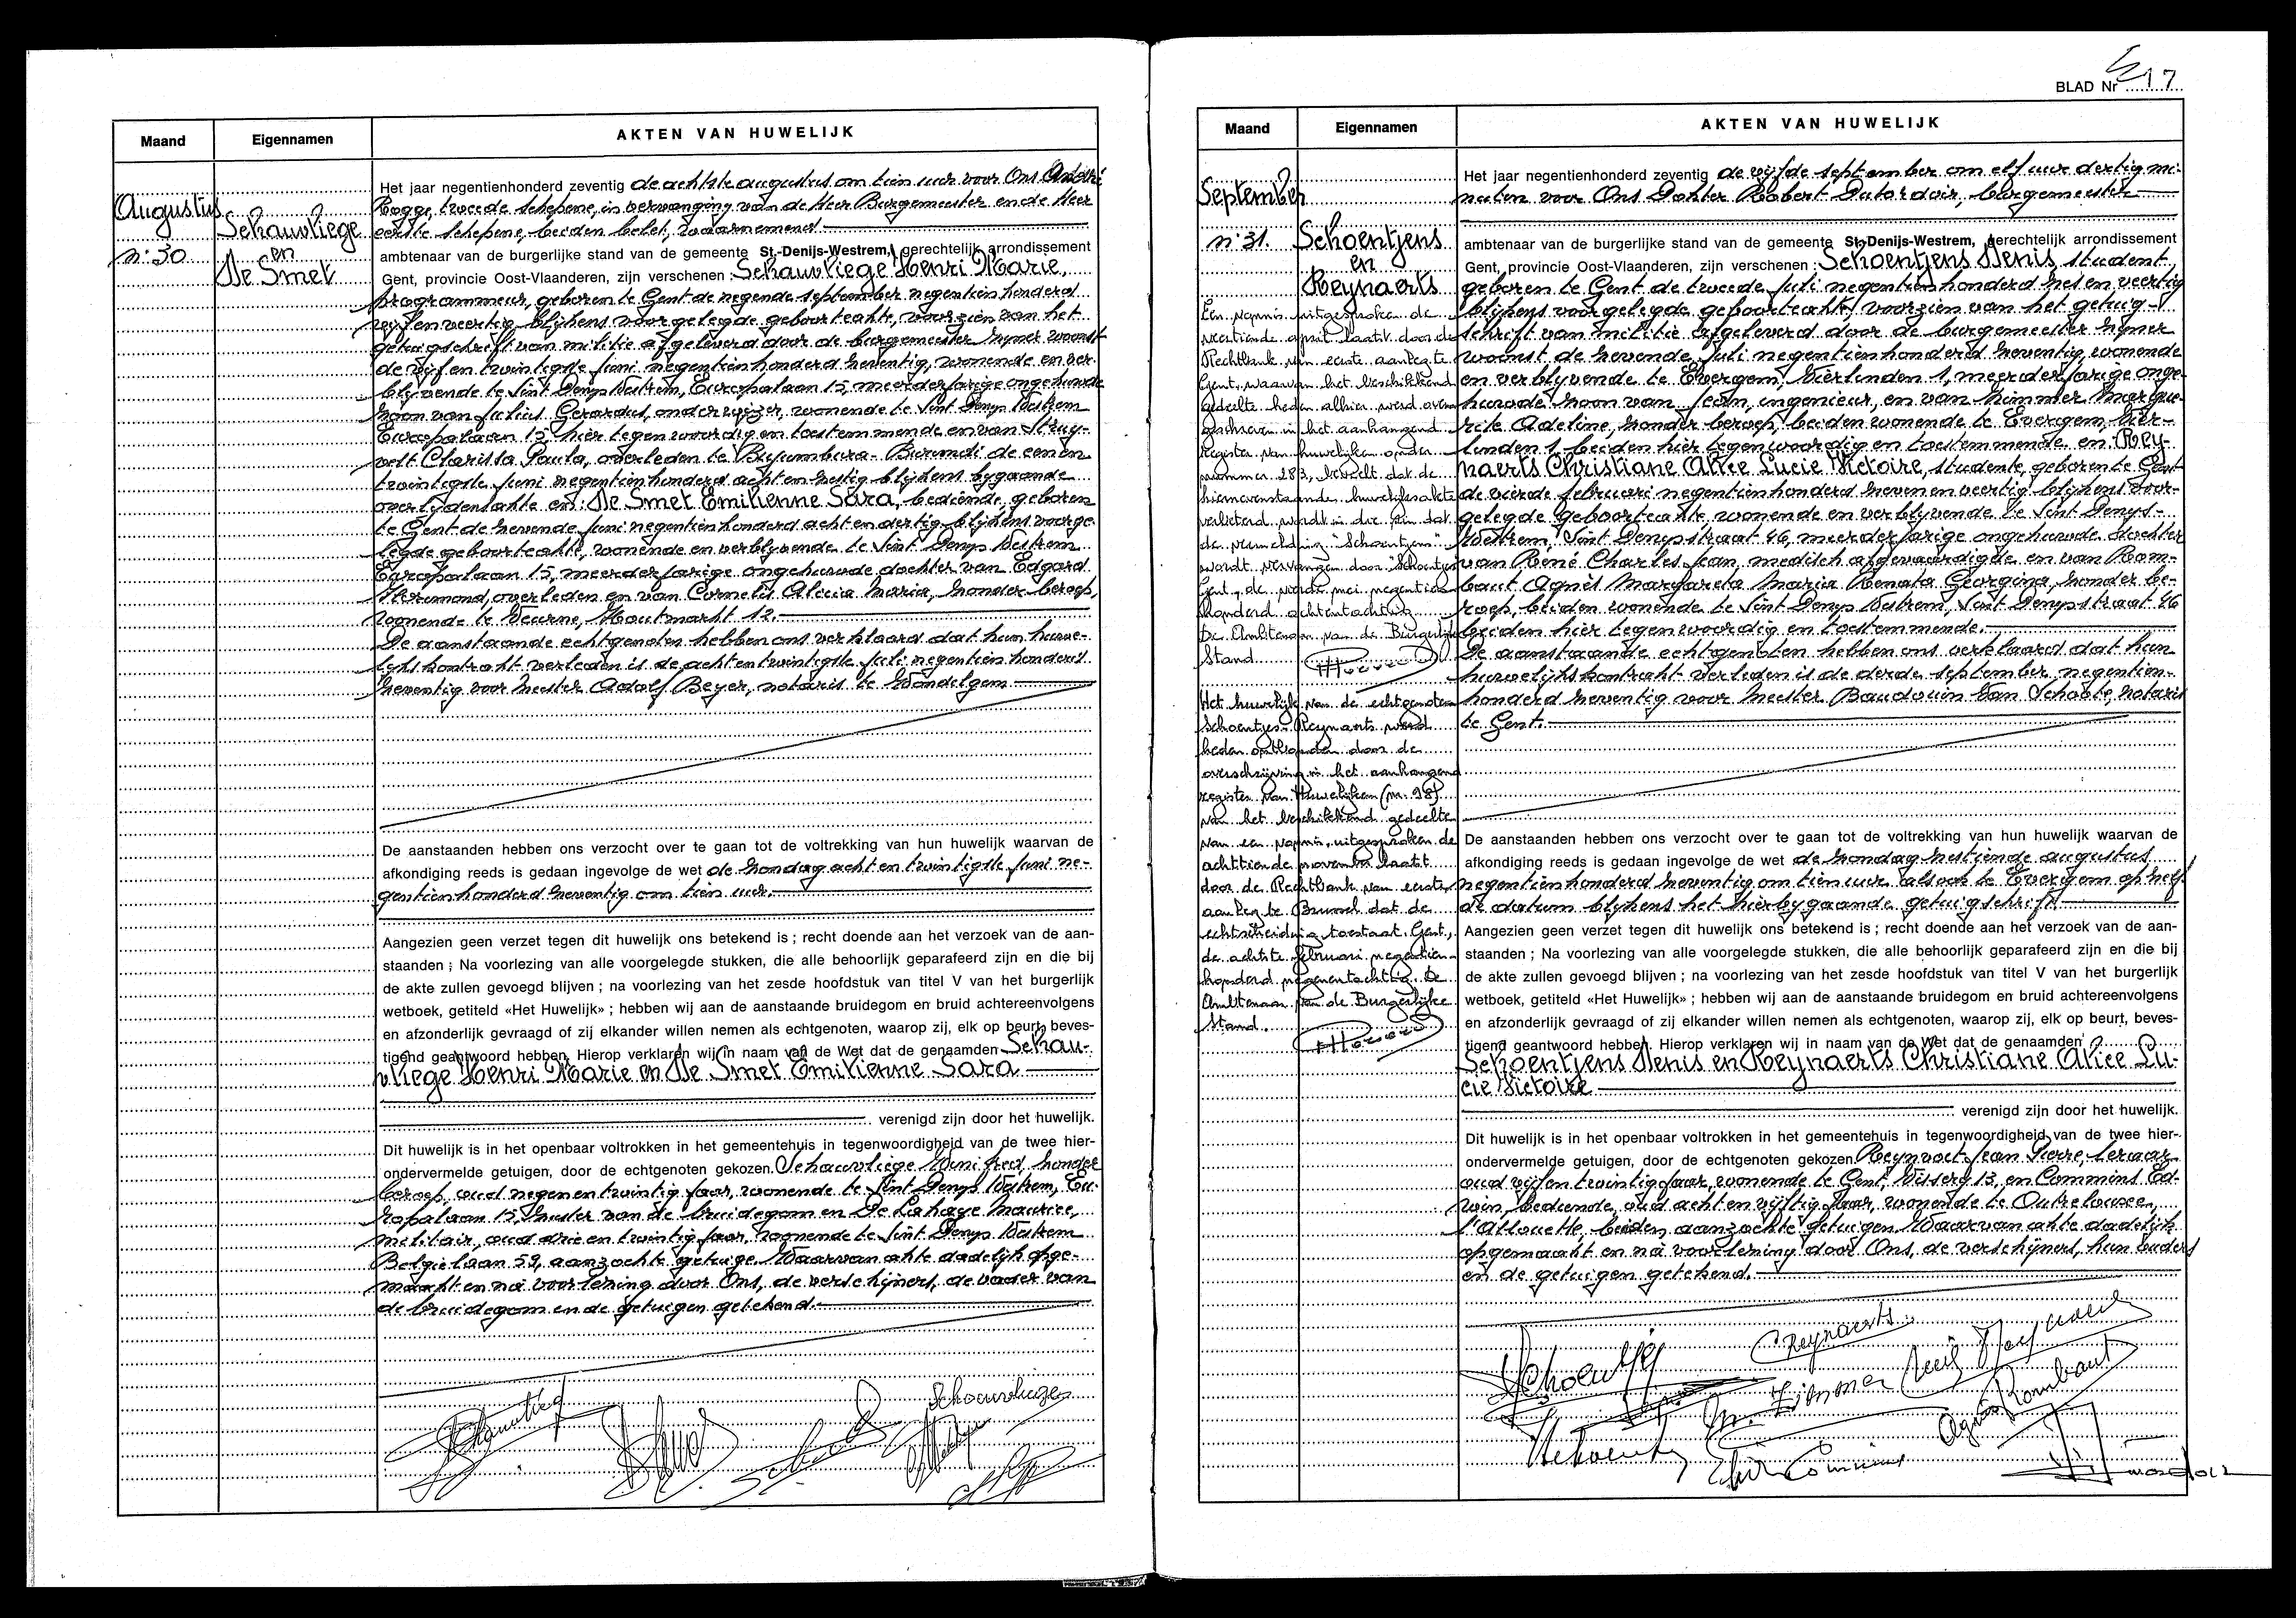 Maand
Eigennamen
AKTEN VAN HUWELIJK
Augustus
n: 30
Schauvliege
en
De Smet
Het jaar negentienhonderd zeventig de achtste augustus om tien uur voor Ons André
Rogge, tweede schepene, in vervanging van de Heer Burgemeester en de Heer
eerste schepene, beiden belet, waarnemend
ambtenaar van de burgerlijke stand van de gemeente St.-Denijs-Westrem, gerechtelijk arrondissement
Gent, provincie Oost-Vlaanderen, zijn verschenen : Schauvliege Henri Marie,
programmeur, geboren te Gent de negende september negentienhonderd
vijfenveertig blijkens voorgelegde geboorteakte, voorzien van het
getuigschrift van militie afgeleverd door de burgemeester zijner woonst
de vijfentwintigste juni negentienhonderd zeventig, wonende en ver-
blijvende te Sint Denys Westrem, Europalaan 15, meerderjarige ongehuwde
zoon van Julius Gerardus, onderwijzer, wonende te Sint Denys Westrem
Europalaan 15 hier tegenwoordig en toestemmende en van Strug-
velt Clarissa Paula, overleden te Bujumbura - Burundi de eenen
twintigste juni negentienhonderd achtenzestig blijkens bijgaande
overlijdensakte en: De Smet Emilienne Sara, bediende, geboren
te Gent de zevende juni negentienhonderd achtendertig blijkens voorge-
legde geboorteakte, wonende en verblijvende te Sint Denys Westrem
Europalaan 15, meerderjarige ongehuwde dochter van Edgard
Floremond, overleden en van Cornelis Alicia Maria, zonder beroep,
wonende te Veurne, Houtmarkt 12.
De aanstaande echtgenoten hebben ons verklaard dat hun huwe-
lijkskontrakt verleden is de achtentwintigste juli negentienhonderd
zeventig voor meester Adolf Beyer, notaris te Wondelgem
De aanstaanden hebben ons verzocht over te gaan tot de voltrekking van hun huwelijk waarvan de
afkondiging reeds is gedaan ingevolge de wet de zondag achtentwintigste juni ne-
gentienhonderd zeventig om tien uur.
Aangezien geen verzet tegen dit huwelijk ons betekend is ; recht doende aan het verzoek van de aan-
staanden ; Na voorlezing van alle voorgelegde stukken, die alle behoorlijk geparafeerd zijn en die bij
de akte zullen gevoegd blijven ; na voorlezing van het zesde hoofdstuk van titel V van het burgerlijk
wetboek, getiteld «Het Huwelijk» ; hebben wij aan de aanstaande bruidegom en bruid achtereenvolgens
en afzonderlijk gevraagd of zij elkander willen nemen als echtgenoten, waarop zij, elk op beurt, beves-
tigend geantwoord hebben. Hierop verklaren wij in naam van de Wet dat de genaamden Schau-
vliege Henri Marie en De Smet Emilienne Sara
verenigd zijn door het huwelijk.
Dit huwelijk is in het openbaar voltrokken in het gemeentehuis in tegenwoordigheid van de twee hier-
ondervermelde getuigen, door de echtgenoten gekozen Schauvliege Winifred, zonder
beroep, oud negenentwintig jaar, wonende te Sint Denys Westrem, Eu-
ropalaan 15, zuster van de bruidegom en De Lahaye Maurice,
militair, oud drieentwintig jaar, wonende te Sint Denys Westrem
Belgiëlaan 59, aanzochte getuige. Waarvan akte dadelijk opge-
maakt en na voorlezing door Ons, de verschijners, de vader van
de bruidegom en de getuigen getekend.
Schauvliege
BLAD Nr 17
Maand
Eigennamen
AKTEN VAN HUWELIJK
September
n: 31.
Schoentjens
en
Reynaerts
Een vonnis uitgesproken de
veertiende april laatst door de
Rechtbank van eerste aanleg te
Gent, waarvan het beschikkend
gedeelte heden alhier werd over-
geschreven in het aanhangend
register van huwelijken onder
nummer 283, beveelt dat de
hiernevenstaande huwelijksakte
verbeterd wordt in die zin dat
de vermelding "Schoentjens"
wordt vervangen door "Schoentjes"
Gent, de vierde mei negentien-
honderd achtentachtig.
De Ambtenaar van de Burgerlijke
Stand
Het huwelijk van de echtgenoten
Schoentjes-Reynaerts werd
heden ontbonden door de
overschrijving in het aanhangend
register van Huwelijken (nr. 98)
van het beschikkend gedeelte
van een vonnis, uitgesproken de
achttiende november laatst
door de Rechtbank van eerste
aanleg te Brussel dat de
echtscheiding toestaat. Gent,
de achtste februari negentien-
honderd negenentachtig. De
Ambtenaar van de Burgerlijke
Stand.
Het jaar negentienhonderd zeventig de vijfde september om elf uur dertig mi-
nuten voor Ons Dokter Robert Dutordoir, burgemeester
ambtenaar van de burgerlijke stand van de gemeente St-Denijs-Westrem, gerechtelijk arrondissement
Gent, provincie Oost-Vlaanderen, zijn verschenen : Schoentjens Denis student
geboren te Gent de tweede juli negentienhonderd zesenveertig
blijkens voorgelegde geboorteakte, voorzien van het getuig-
schrift van militie afgeleverd door de burgemeester zijner
woonst de zevende juli negentienhonderd zeventig, wonende
en verblijvende te Evergem, Vierlinden 1, meerderjarige onge-
huwde zoon van Jean, ingenieur, en van Zimmer Margue-
rite Adeline, zonder beroep, beiden wonende te Evergem, Vier-
linden 1, beiden hier tegenwoordig en toestemmende en: Rey-
naerts Christiane Alice Lucie Victoire, studente, geboren te Gent
de vierde februari negentienhonderd zevenenveertig blijkens voor-
gelegde geboorteakte wonende en verblijvende te Sint Denys-
Westrem, Sint Denysstraat 46, meerderjarige ongehuwde dochter
van René Charles Jean, medisch afgevaardigde en van Rom-
baut Agnès Margareta Maria Renata Georgina, zonder be-
roep, beiden wonende te Sint Denys Westrem, Sint Denysstraat 46
beiden hier tegenwoordig en toestemmende.
De aanstaande echtgenoten hebben ons verklaard dat hun
huwelijkskontrakt verleden is de derde september negentien-
honderd zeventig voor meester Baudouin Van Schoote, notaris
te Gent.
De aanstaanden hebben ons verzocht over te gaan tot de voltrekking van hun huwelijk waarvan de
afkondiging reeds is gedaan ingevolge de wet de zondag zestiende augustus
negentienhonderd zeventig om tien uur alsook te Evergem op zelf-
de datum blijkens het hierbijgaande getuigschrift
Aangezien geen verzet tegen dit huwelijk ons betekend is ; recht doende aan het verzoek van de aan-
staanden ; Na voorlezing van alle voorgelegde stukken, die alle behoorlijk geparafeerd zijn en die bij
de akte zullen gevoegd blijven ; na voorlezing van het zesde hoofdstuk van titel V van het burgerlijk
wetboek, getiteld «Het Huwelijk» ; hebben wij aan de aanstaande bruidegom en bruid achtereenvolgens
en afzonderlijk gevraagd of zij elkander willen nemen als echtgenoten, waarop zij, elk op beurt, beves-
tigend geantwoord hebben. Hierop verklaren wij in naam van de Wet dat de genaamden
Schoentjens Denis en Reynaerts Christiane Alice Lu-
cie Victoire
verenigd zijn door het huwelijk.
Dit huwelijk is in het openbaar voltrokken in het gemeentehuis in tegenwoordigheid van de twee hier-
ondervermelde getuigen, door de echtgenoten gekozen Reynvoet Jean Pierre, leraar
oud vijfentwintig jaar, wonende te Gent, Visserij 13, en Commins Ed-
win, bediende, oud achtenvijftig jaar, wonende te Outrelouxe,
l'Allouette, beiden aanzochte getuigen. Waarvan akte dadelijk
opgemaakt en na voorlezing door Ons, de verschijners, hun ouders
en de getuigen getekend.
CReynaerts
M. Zimmer
Agnès Rombaut